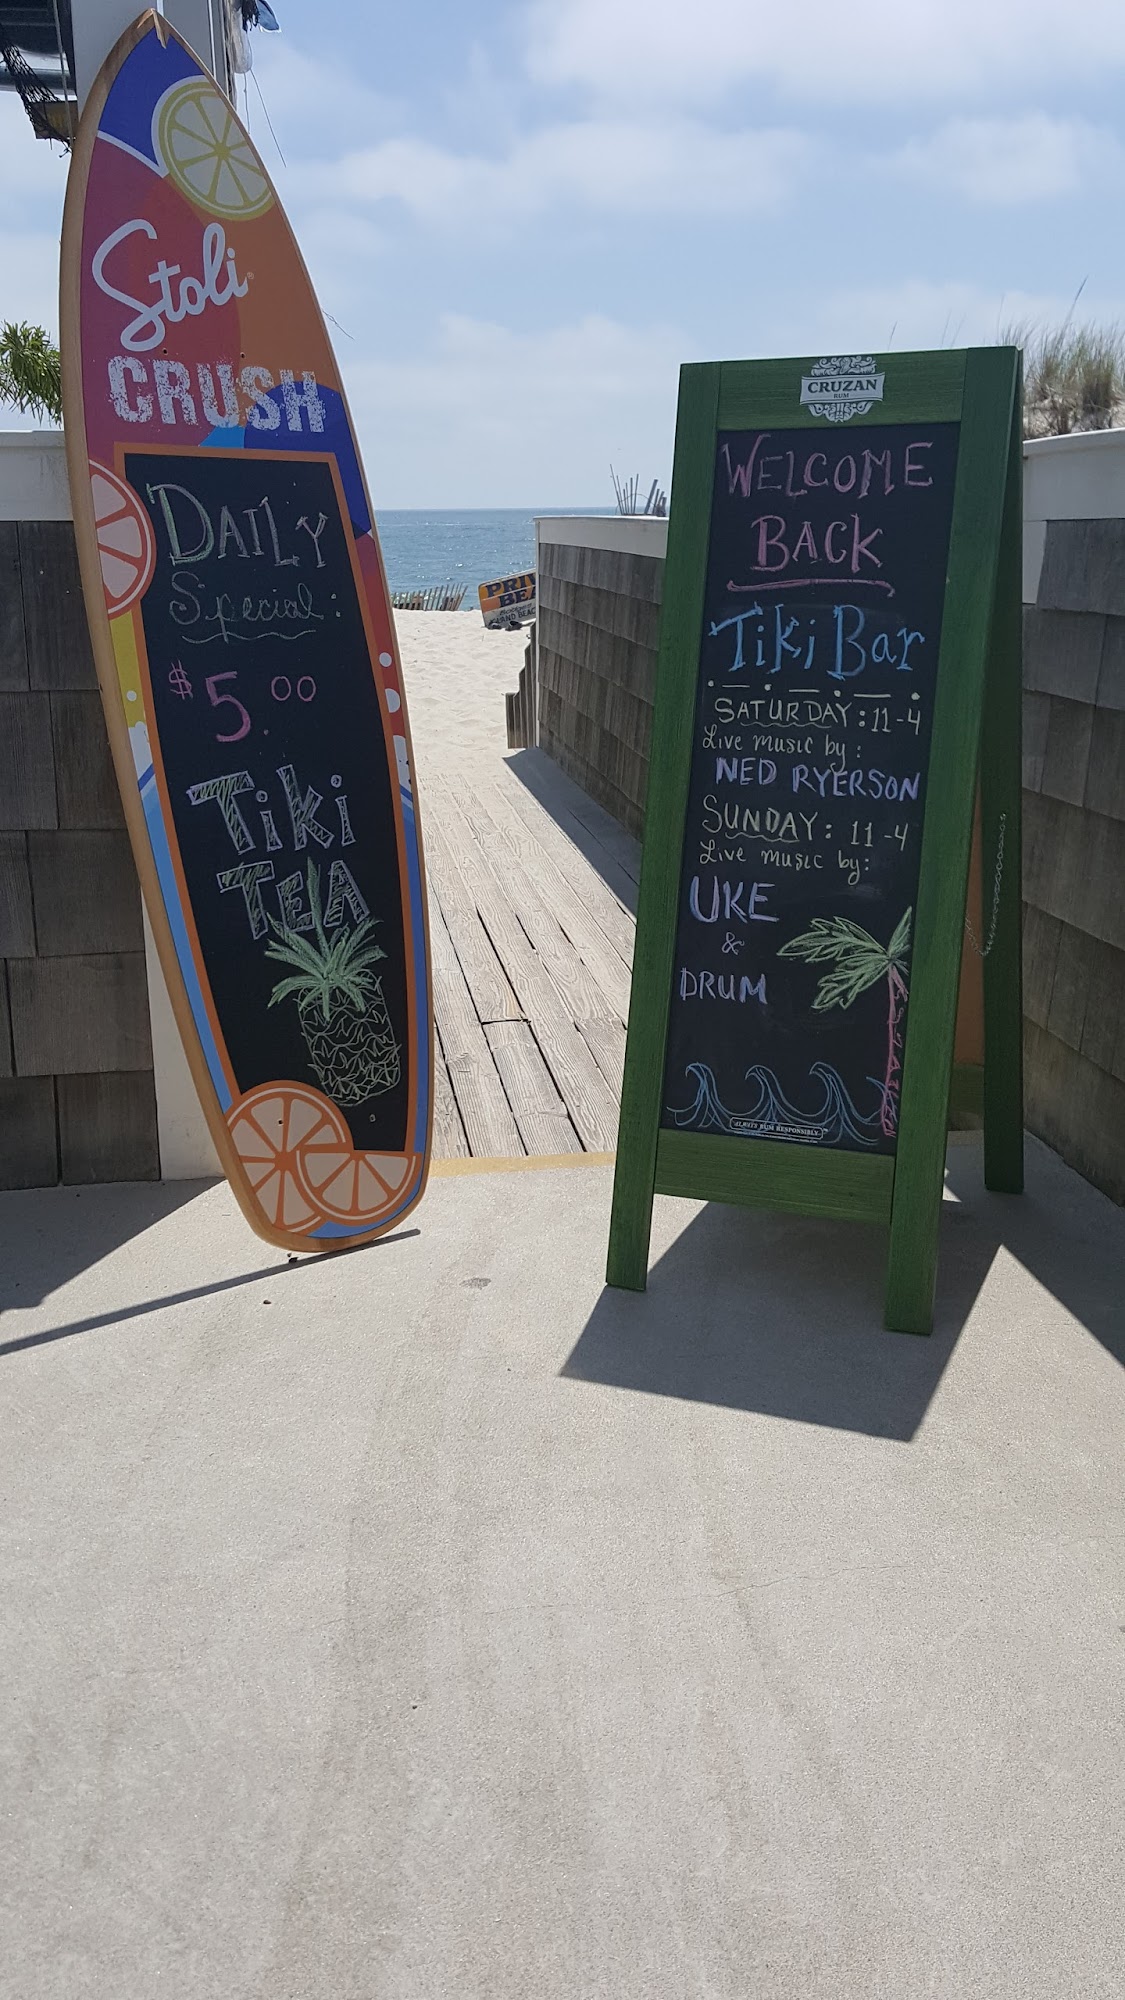 Stoli
CRUSH
DAILY
Special:
$5.00
Tiki
TEA
CRUZAN
RUM
WELCOME
BACK
Tiki Bar
SATURDAY: 11-4
Live music by:
NED RYERSON
SUNDAY: 11-4
Live music by:
UKE
&
DRUM
ALWAYS RUM RESPONSIBLY.